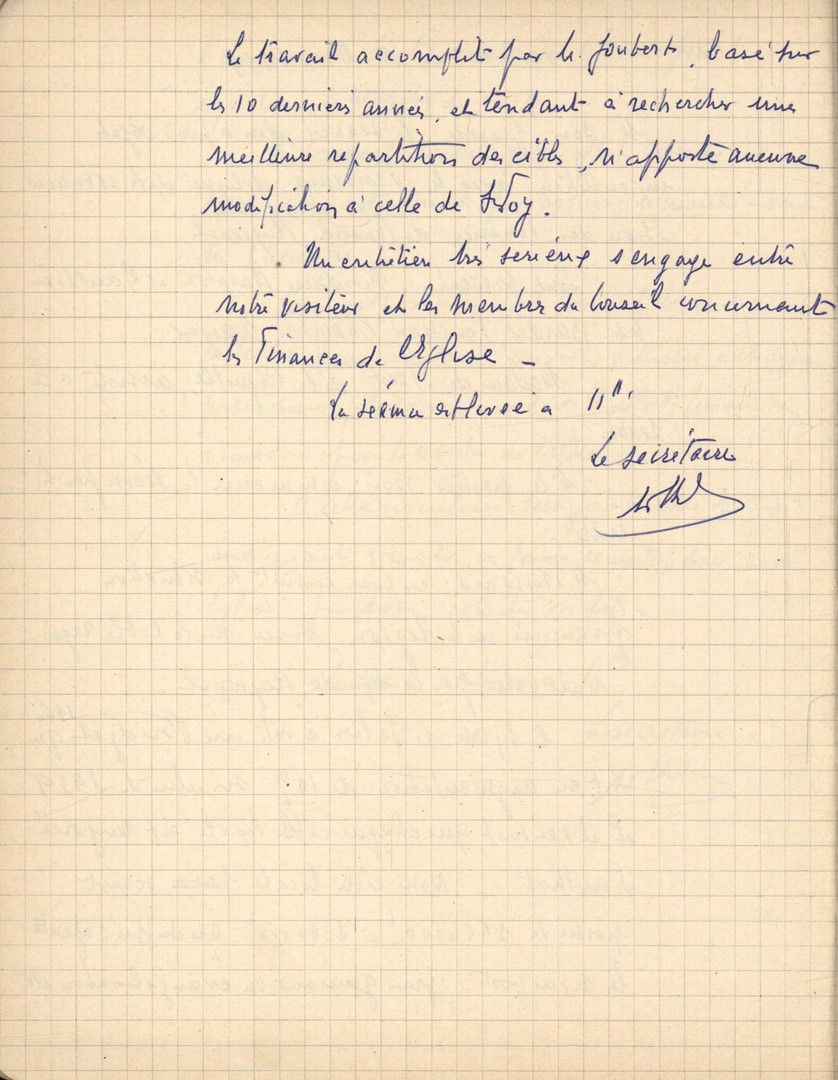 Le travail accomplit par M. Joubert, basé sur
les 10 derniers années, et tendant à rechercher une
meilleure repartition des cibles, n'apporte aucune
modification à celle de
Un entretien très serieux s'engage entre
notre visiteur et les membres du Conseil concernant
les Finances de l'Eglise –
La séance est levée à 11h.
Le secrétaire